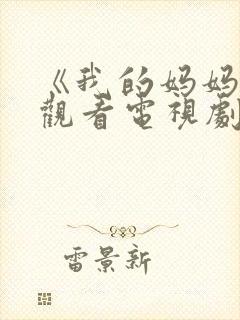 《我的妈妈
觀看電視劇
雷景新